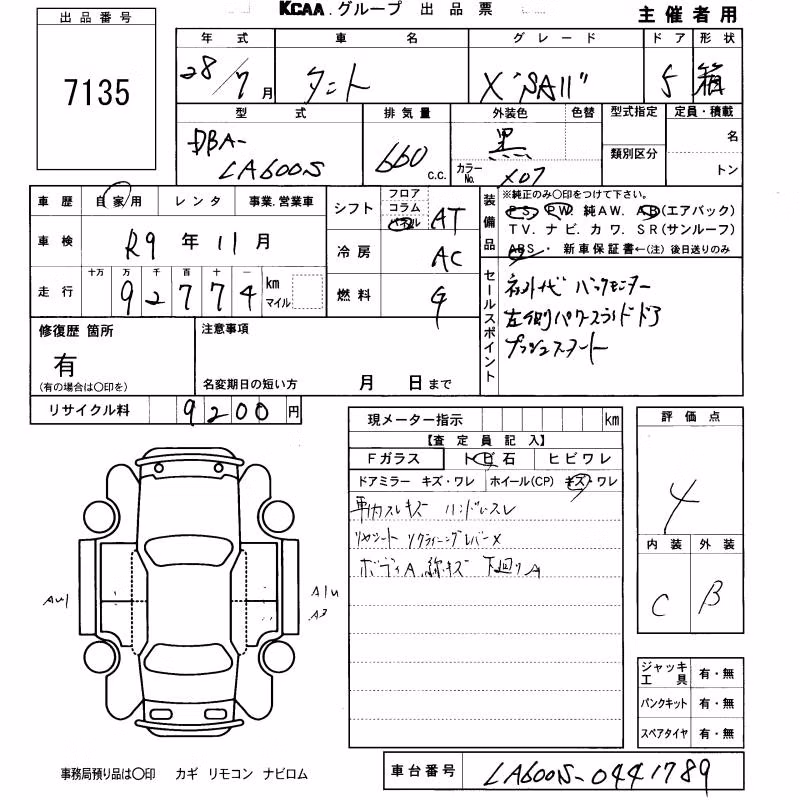 KCAA.グループ 出品票
主催者用
出品番号
7135
年式 車名 グレード ドア 形状
28/7月 タント X"SAII" 5 箱
型式 排気量 外装色 色替 型式指定 定員・積載
DBA-
LA600S
660 C.C.
黒
カラーNo. X07
類別区分
名
トン
車歴 自家用 レンタ 事業.営業車
車検 R9年11月
十万 万 千 百 十 一
走行 92774 km マイル
シフト フロア コラム パネル AT
冷房 AC
燃料 G
装備品
※純正のみ〇印をつけて下さい。
PS. PW. 純AW. AB(エアバック)
TV. ナビ. カワ. SR(サンルーフ)
ABS・ 新車保証書←(注) 後日送りのみ
セールスポイント
バックモニター
左側パワースライドドア
プッシュスタート
修復歴 箇所
有
(有の場合は〇印を)
注意事項
名変期日の短い方 月 日まで
リサイクル料 9200円
現メーター指示 km
【査定員記入】
Fガラス トビ石 ヒビワレ
ドアミラー キズ・ワレ ホイール(CP) キズ・ワレ
車内スレキズ ハンドルスレ
リヤシート リクライニングレバー×
ボディA 線キズ 下廻りA
評価点
4
内装 外装
C B
AW1
A1U
A3
ジャッキ 工具 有・無
パンクキット 有・無
スペアタイヤ 有・無
事務局預り品は〇印 カギ リモコン ナビロム
車台番号 LA600S-0441789